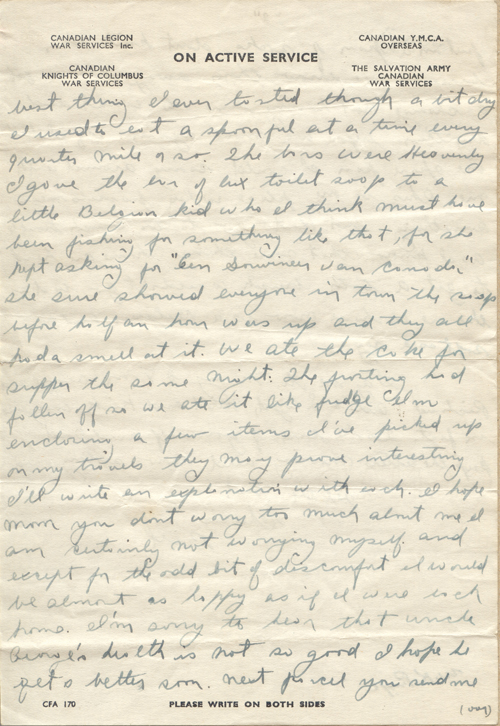 CANADIAN LEGION
WAR SERVICES Inc.
CANADIAN
KNIGHTS OF COLUMBUS
WAR SERVICES
ON ACTIVE SERVICE
CANADIAN Y.M.C.A.
OVERSEAS
THE SALVATION ARMY
CANADIAN
WAR SERVICES
best thing I ever tasted though a bit dry
I used to eat a spoonful at a time every
quarter mile or so. The bars were Heavenly
I gave the bar of lux toilet soap to a
little Belgian kid who I think must have
been fishing for something like that, for she
kept asking for "Een Souvineer van Canada"
she sure showed everyone in town the soap
before half an hour was up and they all
had a smell at it. We ate the cake for
supper the same night. The frosting had
fallen off so we ate it like fudge I'm
enclosing a few items I've picked up
on my travels they may prove interesting
I'll write an explanation with each. I hope
mom you dont worry too much about me I
am certainly not worrying myself. and
except for the odd bit of discomfort I would
be almost as happy as if I were back
home. I'm sorry to hear that uncle
George's health is not so good I hope he
gets better soon. next parcel you send me
CFA 170
PLEASE WRITE ON BOTH SIDES